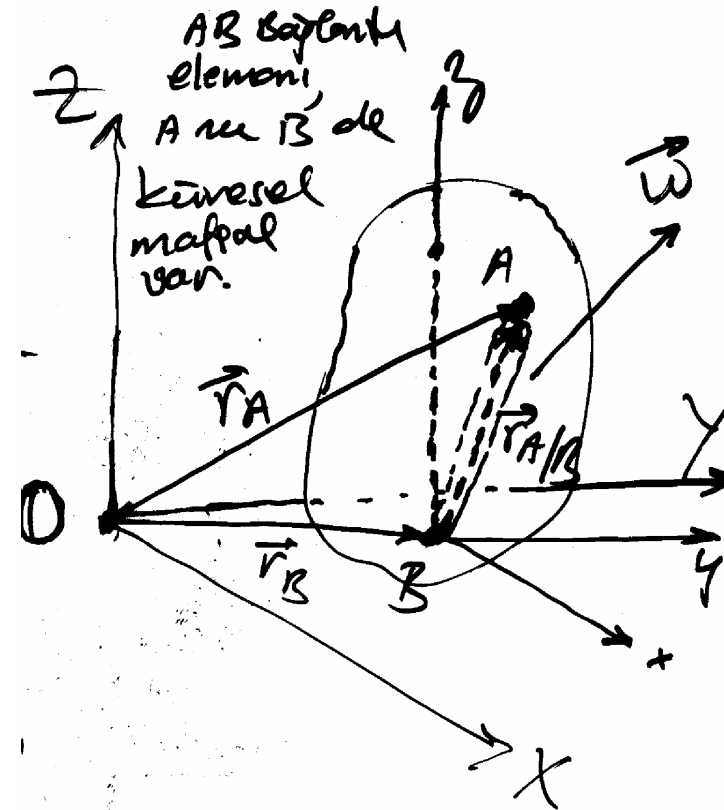 AB Bağlantı
elemanı,
A ve B'de
küresel
mafsal
var.
Z
z
ω
A
r_A
r_A/B
Y
O
r_B
B
y
x
X